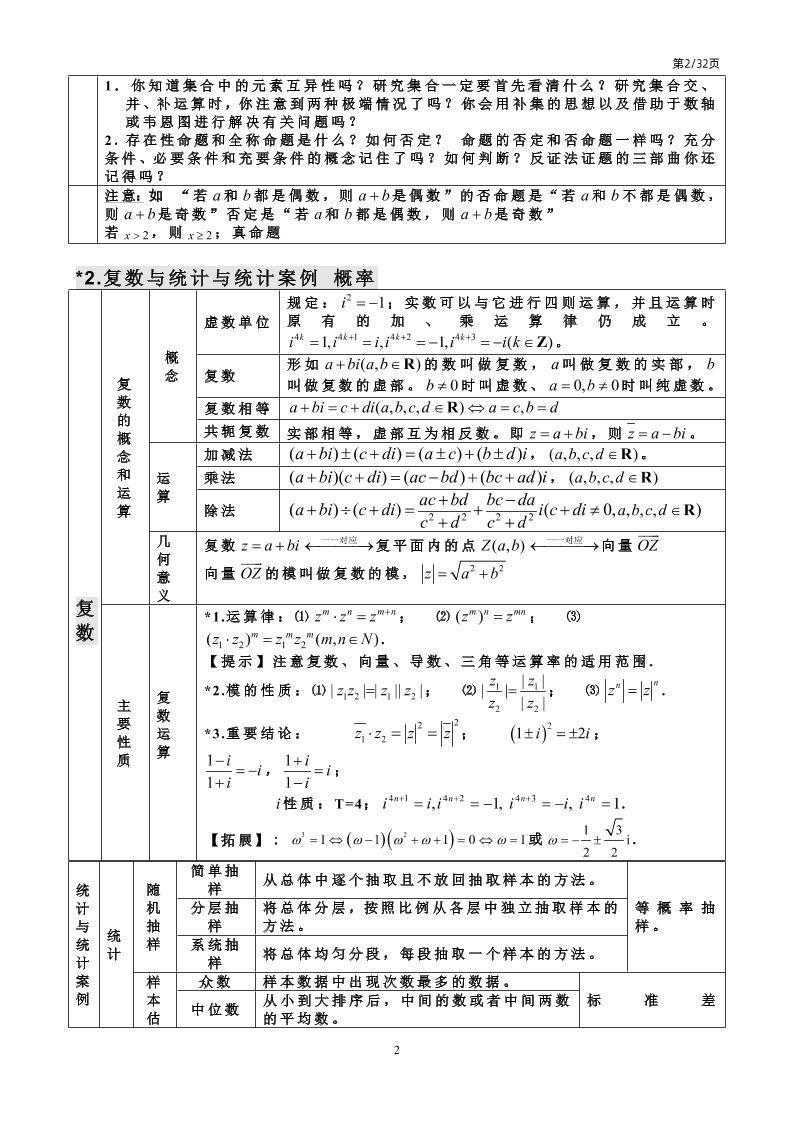 第2/32页
1．你知道集合中的元素互异性吗？研究集合一定要首先看清什么？研究集合交、
并、补运算时，你注意到两种极端情况了吗？你会用补集的思想以及借助于数轴
或韦恩图进行解决有关问题吗？
2．存在性命题和全称命题是什么？如何否定？ 命题的否定和否命题一样吗？充分
条件、必要条件和充要条件的概念记住了吗？如何判断？反证法证题的三部曲你还
记得吗？
注意：如 “若 a 和 b 都是偶数，则 a+b 是偶数”的否命题是“若 a 和 b 不都是偶数，
则 a+b 是奇数”否定是“若 a 和 b 都是偶数，则 a+b 是奇数”
若 x>2，则 x≥2；真命题
*2.复数与统计与统计案例 概率
复数
复数的概念和运算
概念
虚数单位
规定：i²=−1；实数可以与它进行四则运算，并且运算时
原有的加、乘运算律仍成立。
i^{4k}=1,i^{4k+1}=i,i^{4k+2}=−1,i^{4k+3}=−i(k∈Z)。
复数
形如 a+bi(a,b∈R) 的数叫做复数，a 叫做复数的实部，b
叫做复数的虚部。b≠0 时叫虚数、a=0,b≠0 时叫纯虚数。
复数相等
a+bi=c+di(a,b,c,d∈R)⇔a=c,b=d
共轭复数
实部相等，虚部互为相反数。即 z=a+bi，则 z̅=a−bi。
运算
加减法
(a+bi)±(c+di)=(a±c)+(b±d)i，(a,b,c,d∈R)。
乘法
(a+bi)(c+di)=(ac−bd)+(bc+ad)i，(a,b,c,d∈R)
除法
(a+bi)÷(c+di)=\frac{ac+bd}{c²+d²}+\frac{bc−da}{c²+d²}i(c+di≠0,a,b,c,d∈R)
几何意义
复数 z=a+bi ←一一对应→ 复平面内的点 Z(a,b) ←一一对应→ 向量 \overrightarrow{OZ}
向量 \overrightarrow{OZ} 的模叫做复数的模，|z|=√(a²+b²)
主要性质
复数运算
*1.运算律：⑴ z^m·z^n=z^{m+n}； ⑵ (z^m)^n=z^{mn}； ⑶
(z₁·z₂)^m=z₁^m z₂^m(m,n∈N)．
【提示】注意复数、向量、导数、三角等运算率的适用范围．
*2.模的性质：⑴ |z₁z₂|=|z₁||z₂|； ⑵ |\frac{z₁}{z₂}|=\frac{|z₁|}{|z₂|}； ⑶ |z^n|=|z|^n．
*3.重要结论： \overline{z₁}·z₂=|z|²=|z̅|²； (1±i)²=±2i；
\frac{1−i}{1+i}=−i，\frac{1+i}{1−i}=i；
i 性质：T=4；i^{4n+1}=i,i^{4n+2}=−1, i^{4n+3}=−i, i^{4n}=1．
【拓展】：ω³=1⇔(ω−1)(ω²+ω+1)=0⇔ω=1 或 ω=−\frac{1}{2}±\frac{√3}{2}i．
统计与统计案例
统计
随机抽样
简单抽样
从总体中逐个抽取且不放回抽取样本的方法。
等概率抽样。
分层抽样
将总体分层，按照比例从各层中独立抽取样本的
方法。
系统抽样
将总体均匀分段，每段抽取一个样本的方法。
样本估
众数
样本数据中出现次数最多的数据。
标准差
中位数
从小到大排序后，中间的数或者中间两数
的平均数。
2